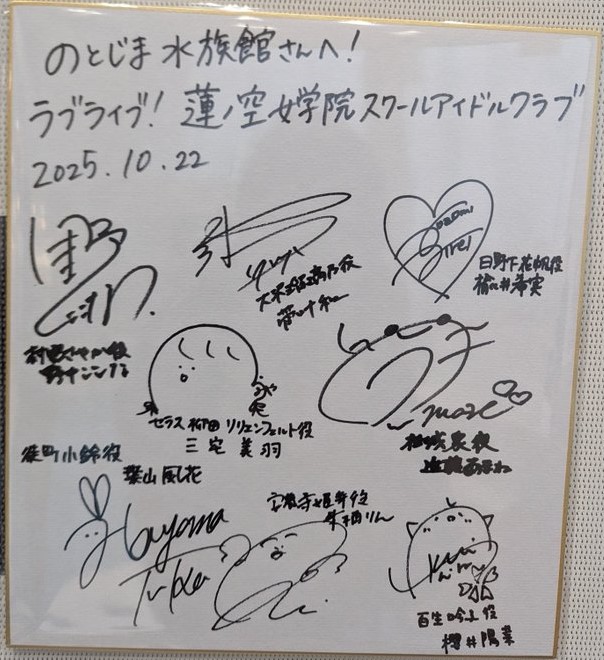 のとじま水族館さんへ!
ラブライブ! 蓮ノ空女学院スクールアイドルクラブ
2025.10.22
日野下花帆役
楡井希実
村野さやか役
野中ここな
大沢瑠璃乃役
菅叶和
セラス 柳田 リリエンフェルト役
三宅美羽
徒町小鈴役
葉山風花
Hayama
Fuka
安養寺姫芽役
来栖りん
百生吟子役
櫻井陽菜